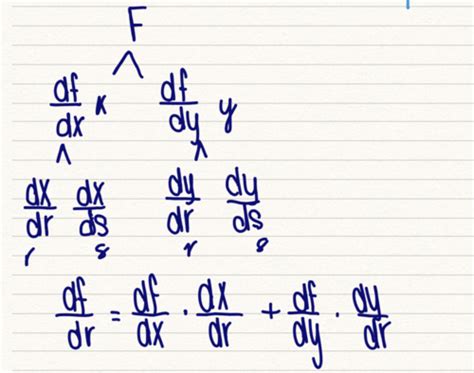 F
df/dx x df/dy y
dx/dr dx/ds dy/dr dy/ds
r s r s
df/dr = df/dx · dx/dr + df/dy · dy/dr